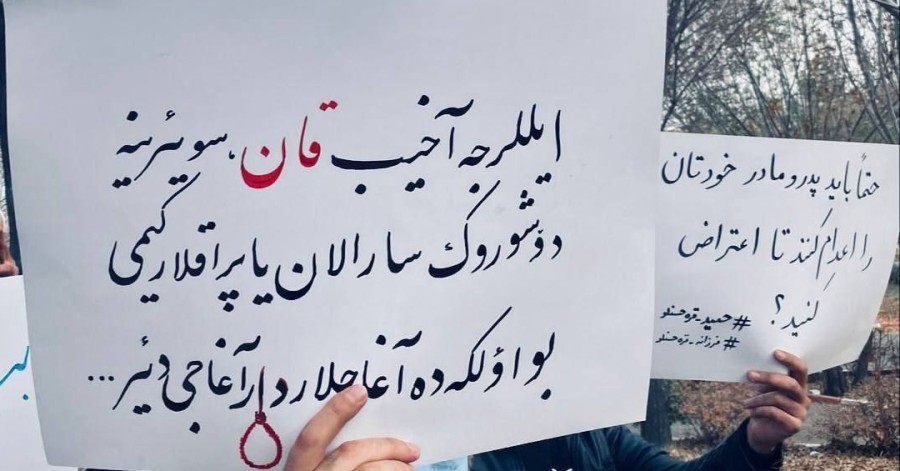 ایللرجه آخیب قان، سویئرینه
دؤشوروک سارالان یاپراقلار کیمی
بو اؤلکه ده آغاجلار دار آغاجی دیئر...
حتماً باید پدر و مادر خودتان
را اعدام کنند تا اعتراض
کنید؟
#حمید_قره‌حسنلو
#فرزانه_قره‌حسنلو